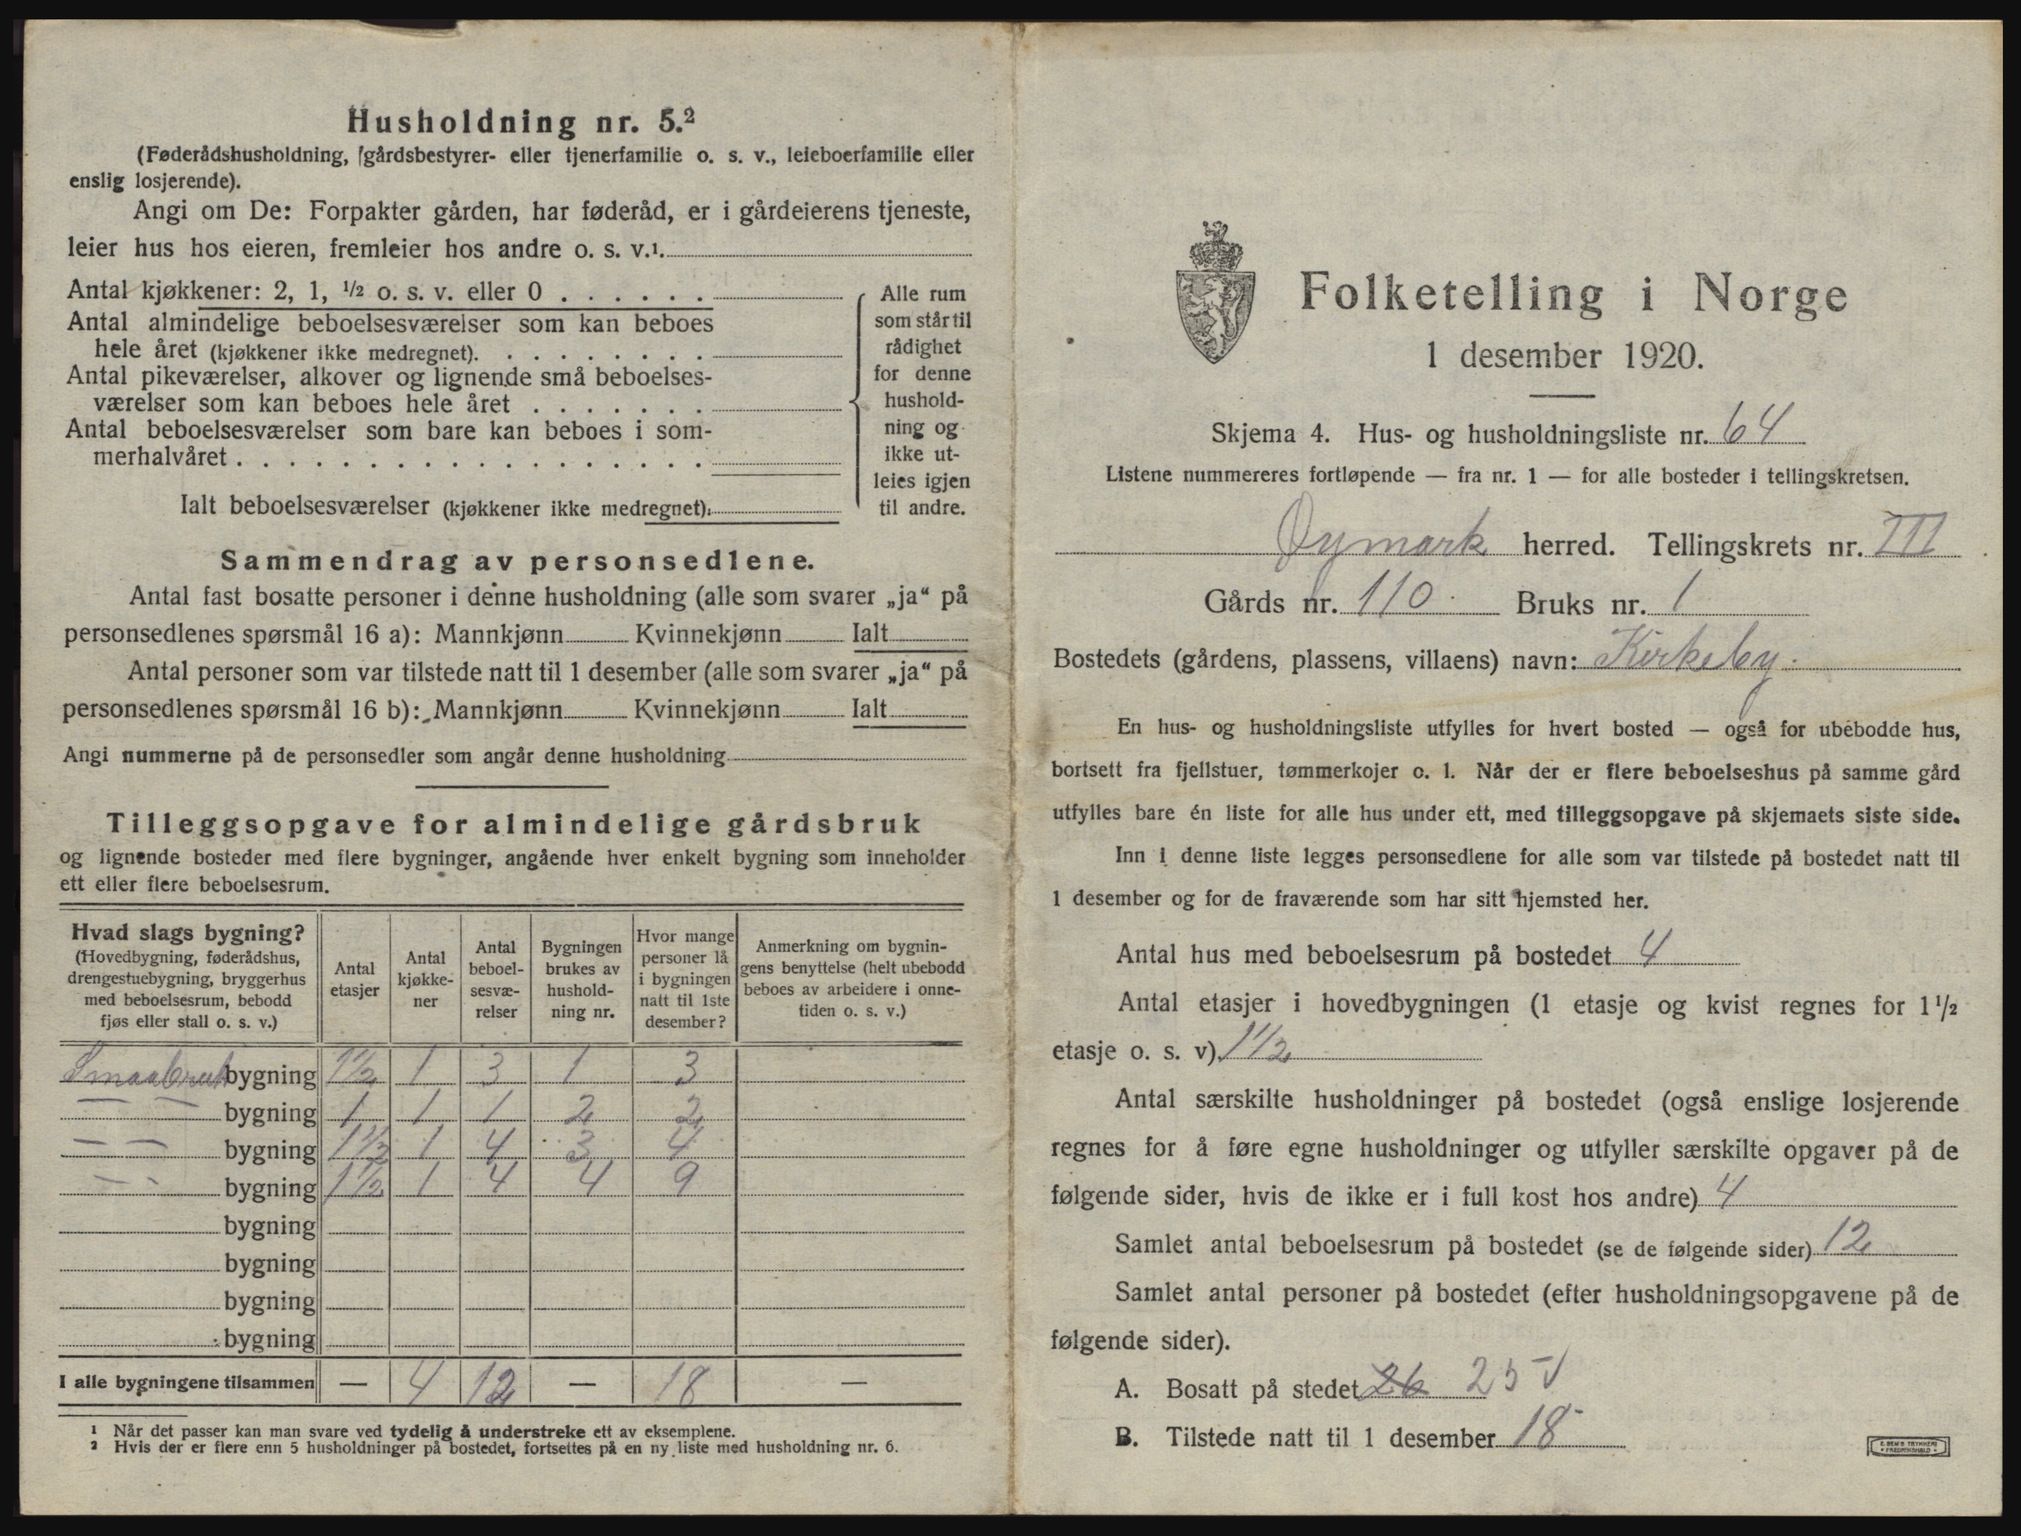 Husholdning nr. 5.²
(Føderådshusholdning, gårdsbestyrer- eller tjenerfamilie o. s. v., leieboerfamilie eller
enslig losjerende).
Angi om De: Forpakter gården, har føderåd, er i gårdeierens tjeneste,
leier hus hos eieren, fremleier hos andre o. s. v.¹.
Antal kjøkkener: 2, 1, ½ o. s. v. eller 0 . . . . . .
Antal almindelige beboelsesværelser som kan beboes
hele året (kjøkkener ikke medregnet). . . . . . . . .
Antal pikeværelser, alkover og lignende små beboelses-
værelser som kan beboes hele året . . . . . . .
Antal beboelsesværelser som bare kan beboes i som-
merhalvåret . . . . . . . . . . . . . . . . . .
Ialt beboelsesværelser (kjøkkener ikke medregnet).
Alle rum
som står til
rådighet
for denne
hushold-
ning og
ikke ut-
leies igjen
til andre.
Sammendrag av personsedlene.
Antal fast bosatte personer i denne husholdning (alle som svarer „ja“ på
personsedlenes spørsmål 16 a): Mannkjønn Kvinnekjønn Ialt
Antal personer som var tilstede natt til 1 desember (alle som svarer „ja“ på
personsedlenes spørsmål 16 b): Mannkjønn Kvinnekjønn Ialt
Angi nummerne på de personsedler som angår denne husholdning
Tilleggsopgave for almindelige gårdsbruk
og lignende bosteder med flere bygninger, angående hver enkelt bygning som inneholder
ett eller flere beboelsesrum.
Hvad slags bygning?
(Hovedbygning, føderådshus,
drengestuebygning, bryggerhus
med beboelsesrum, bebodd
fjøs eller stall o. s. v.)
Antal
etasjer
Antal
kjøkke-
ner
Antal
beboel-
sesvæ-
relser
Bygningen
brukes av
hushold-
ning nr.
Hvor mange
personer lå
i bygningen
natt til 1ste
desember?
Anmerkning om bygnin-
gens benyttelse (helt ubebodd
beboes av arbeidere i onne-
tiden o. s. v.)
Smaabruk bygning 1½ 1 3 1 3
— — bygning 1 1 1 2 2
— — bygning 1½ 1 4 3 4
— - bygning 1½ 1 4 4 9
bygning
bygning
bygning
bygning
I alle bygningene tilsammen — 4 12 — 18 —
¹ Når det passer kan man svare ved tydelig å understreke ett av eksemplene.
² Hvis der er flere enn 5 husholdninger på bostedet, fortsettes på en ny liste med husholdning nr. 6.
Folketelling i Norge
1 desember 1920.
Skjema 4. Hus- og husholdningsliste nr. 64
Listene nummereres fortløpende — fra nr. 1 — for alle bosteder i tellingskretsen.
Øymark herred. Tellingskrets nr. III
Gårds nr. 110. Bruks nr. 1
Bostedets (gårdens, plassens, villaens) navn: Kirkeby.
En hus- og husholdningsliste utfylles for hvert bosted — også for ubebodde hus,
bortsett fra fjellstuer, tømmerkojer o. l. Når der er flere beboelseshus på samme gård
utfylles bare én liste for alle hus under ett, med tilleggsopgave på skjemaets siste side.
Inn i denne liste legges personsedlene for alle som var tilstede på bostedet natt til
1 desember og for de fraværende som har sitt hjemsted her.
Antal hus med beboelsesrum på bostedet 4
Antal etasjer i hovedbygningen (1 etasje og kvist regnes for 1½
etasje o. s. v). 1½
Antal særskilte husholdninger på bostedet (også enslige losjerende
regnes for å føre egne husholdninger og utfyller særskilte opgaver på de
følgende sider, hvis de ikke er i full kost hos andre) 4
Samlet antal beboelsesrum på bostedet (se de følgende sider) 12
Samlet antal personer på bostedet (efter husholdningsopgavene på de
følgende sider).
A. Bosatt på stedet 26 25 √
B. Tilstede natt til 1 desember 18
E. SEM'S TRYKKERI
FREDRIKSHALD